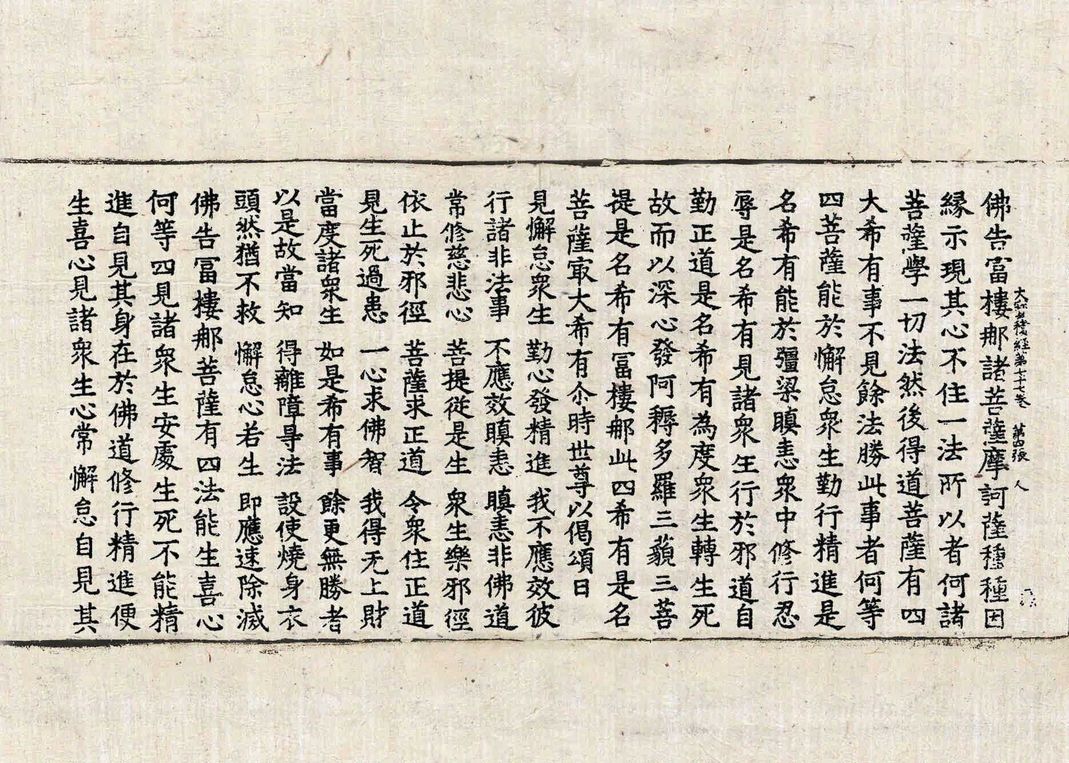 佛告冨樓那諸菩薩摩訶薩種種因
大寳積經第七十七卷 第四張 人
縁示現其心不住一法所以者何諸
菩薩學一切法然後得道菩薩有四
大希有事不見餘法勝此事者何等
四菩薩能於懈怠衆生勤行精進是
名希有能於彊梁瞋恚衆中修行忍
辱是名希有見諸衆生行於邪道自
勤正道是名希有為度衆生轉生死
故而以深心發阿耨多羅三藐三菩
提是名希有冨樓那此四希有是名
菩薩㝡大希有尒時世尊以偈頌曰
見懈怠衆生 勤心發精進 我不應效彼
行諸非法事 不應效瞋恚 瞋恚非佛道
常修慈悲心 菩提從是生 衆生樂邪徑
依止於邪徑 菩薩求正道 令衆住正道
見生死過患 一心求佛智 我得无上財
當度諸衆生 如是希有事 餘更無勝者
以是故當知 得離障㝵法 設使燒身衣
頭然猶不救 懈怠心若生 即應速除滅
佛告冨樓那菩薩有四法能生喜心
何等四見諸衆生安處生死不能精
進自見其身在於佛道修行精進便
生喜心見諸衆生心常懈怠自見其